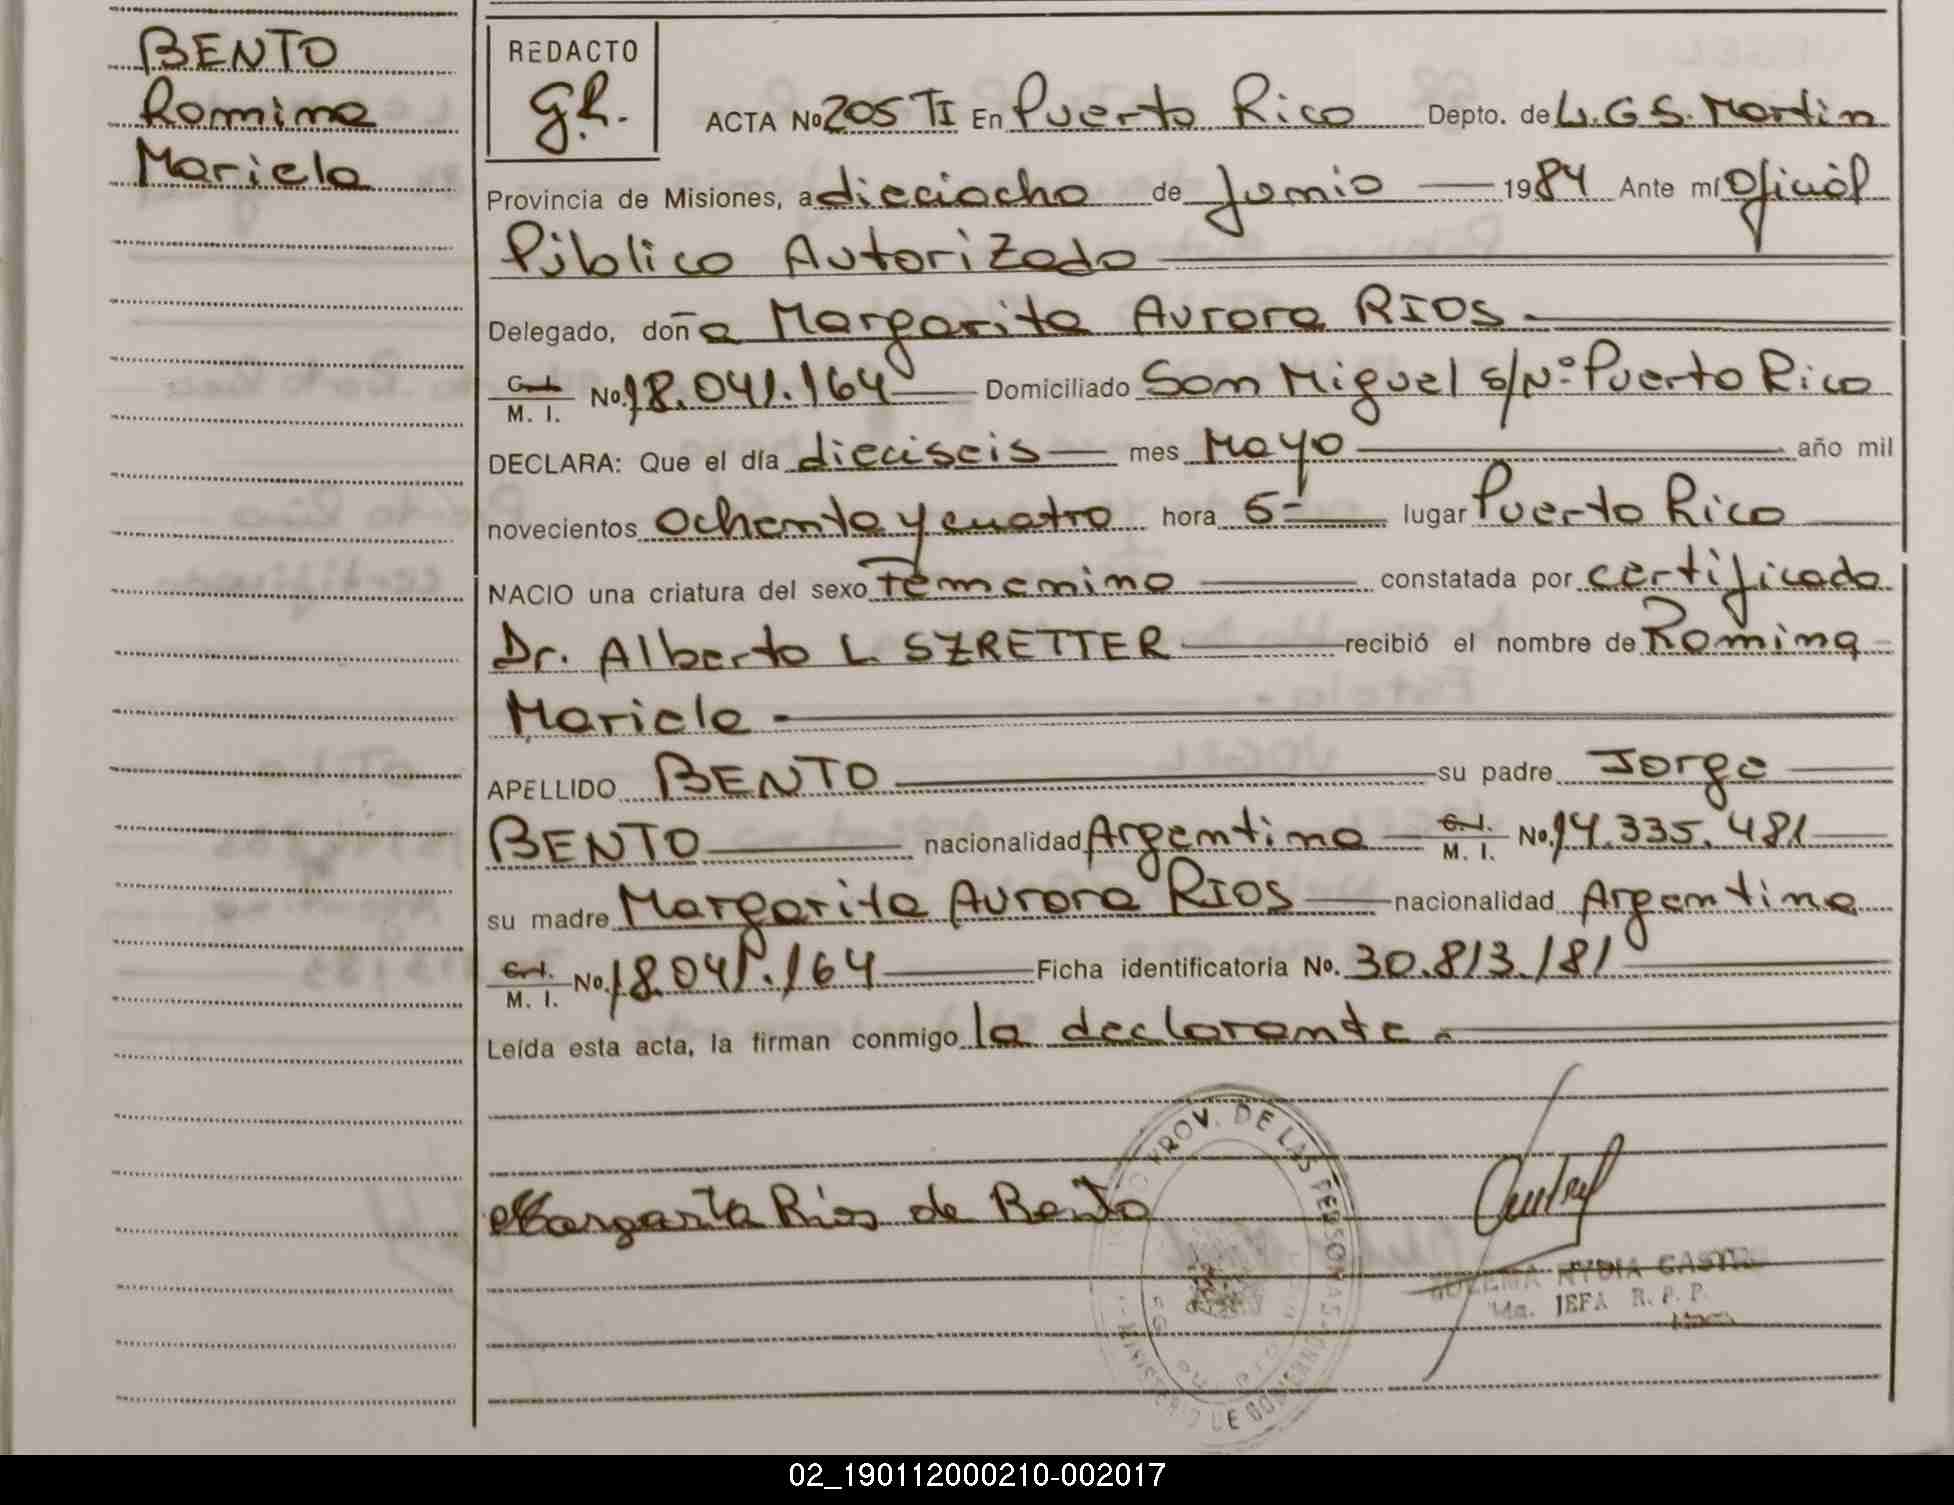 BENTO
Romina
Mariela
REDACTO
G.R.
ACTA No 205 TI En Puerto Rico Depto. de L.G.S. Martin
Provincia de Misiones, a dieciocho de Junio 1984 Ante mí Oficial
Público Autorizado
Delegado, doña Margarita Aurora RIOS
C.I. M. I. No. 18.041.164 Domiciliado San Miguel s/Nº Puerto Rico
DECLARA: Que el día dieciseis mes Mayo año mil
novecientos ochenta y cuatro hora 5- lugar Puerto Rico
NACIO una criatura del sexo Femenino constatada por certificado
Dr. Alberto L. SZRETTER recibió el nombre de Romina
Mariela
APELLIDO BENTO su padre Jorge
BENTO nacionalidad Argentina C.I. M. I. No. 14.335.481
su madre Margarita Aurora RIOS nacionalidad Argentina
C.I. M. I. No. 18.041.164 Ficha identificatoria No. 30.813.181
Leída esta acta, la firman conmigo la declarante.
Margarita Rios de Bento
PROV. DE LAS PERSONAS
NYDIA CASTRO
JEFA R. P. P.
02_190112000210-002017